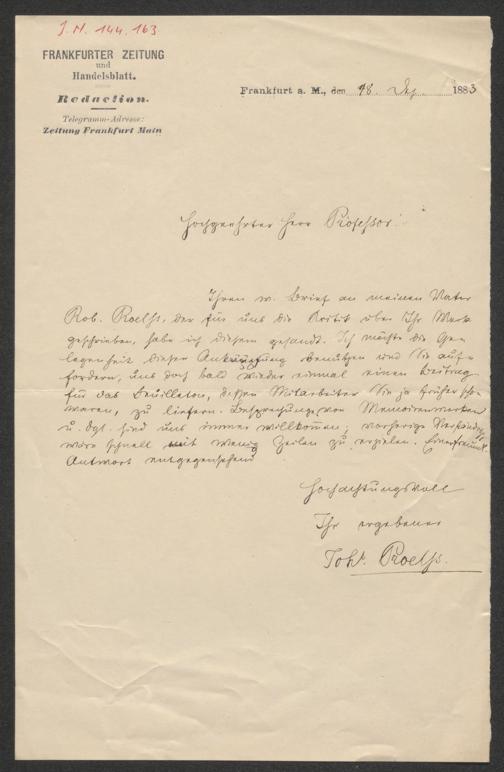 J. N. 144.163
FRANKFURTER ZEITUNG
und
Handelsblatt.
Redaction.
Telegramm-Adresse:
Zeitung Frankfurt Main
Frankfurt a. M., den 18. Dez. 1883
Hochgeehrter Herr Professor!
Ihren w. Brief an meinen Vater
Rob. Proelß, der für uns die Kritik über Ihr Werk
geschrieben, habe ich diesem gesandt. Ich möchte die Gele-
legenheit dieser Anknüpfung benützen und Sie auf-
fordern, uns doch bald wieder einmal einen Beitrag
für das Feuilleton, dessen Mitarbeiter Sie ja früher schon
waren, zu liefern. Besprechungen von Memoirenwerken
u. dgl. sind uns immer willkommen; vorherige Verständig.
wäre schnell mit wenig Zeilen zu erzielen. Einer freundl.
Antwort entgegensehend
Hochachtungsvoll
Ihr ergebener
Johs. Proelß.